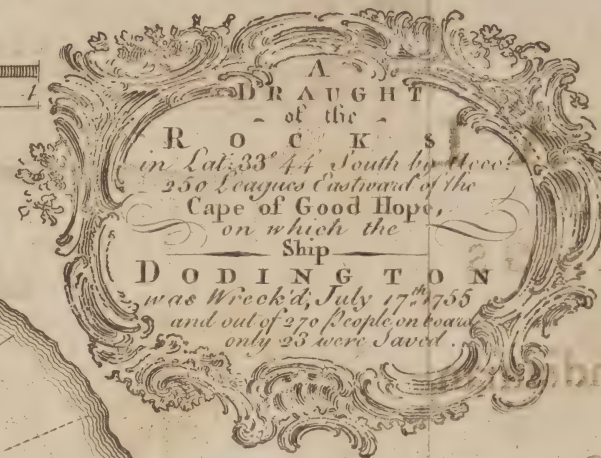 A
DRAUGHT
of the
ROCKS
in Lat: 33° 44' South by Acct.
250 Leagues Eastward of the
Cape of Good Hope,
on which the
Ship
DODINGTON
was Wreck'd, July 17th. 1755
and out of 270 People on board
only 23 were Saved.